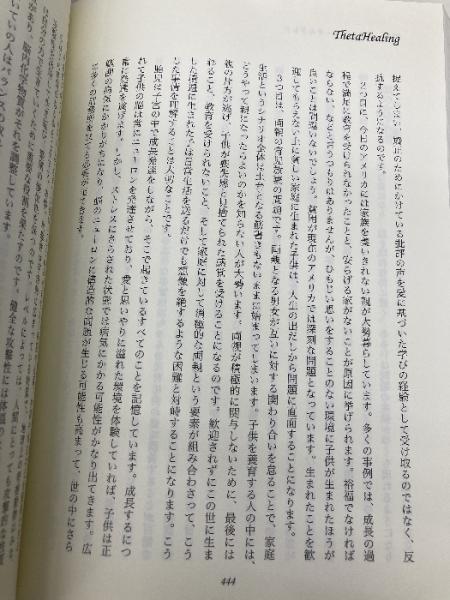 ThetaHealing
捉えてしまい、矯正のためにかけている批評の声を愛に基づいた学びの経験として受け取るのではなく、反
抗するようになります。
2つ目に、今日のアメリカには家族を養いきれない親が大勢暮らしています。多くの事例では、成長の過
程で満足に教育を受けられなかったことと、安らげる家がないことが原因に挙げられます。裕福でなければ
ならない、などと言うつもりはありませんが、ひもじい思いをすることのない環境に子供が生まれたほうが
良いことは間違いないでしょう。貧困が現在のアメリカでは深刻な問題となっています。生まれたことを歓
迎してもらえない上に貧しい家庭に生まれた子供は、人生の出だしから問題に直面することになります。
3つ目は、両親の育児放棄の問題です。両親となる男女が互いに対する関わり合いを怠ることで、家庭
生活というシナリオ全体は土台となる筋書きもないままに始まってしまいます。子供を養育する人の中には、
どうやって親になったらよいのかを知らない人が大勢います。両親が積極的に関与しないために、最後には
彼の片方が逃げ、子供が喪失感と見捨てられた感覚を受けることになるのです。歓迎されずにこの世に生ま
れること、教育を受けられないこと、そして家庭に対して消極的な両親という要素が組み合わさって、こう
した構造に生まれた子は日常生活を送るだけでも想像を絶するような困難と対峙することになります。こう
した事情を理解することは大切なことです。
胎児は子宮の中で成長発達をしながら、そこで起きているすべてのことを記憶しています。成長するにつ
れて子供の脳は常にニューロンを発達させており、愛と思いやりに溢れた環境を体験していれば、子供は正
常に発展を遂げます。しかし、ストレスにさらされた状態では病気にかかる可能性がかなり出てきます。広
範囲の病気にかかりがちになり、脳のニューロンに構造的な問題が生じる可能性も高まって、世の中にさら
脳内化学物質がそれを調整しています。
健全な攻撃性には体温の
444